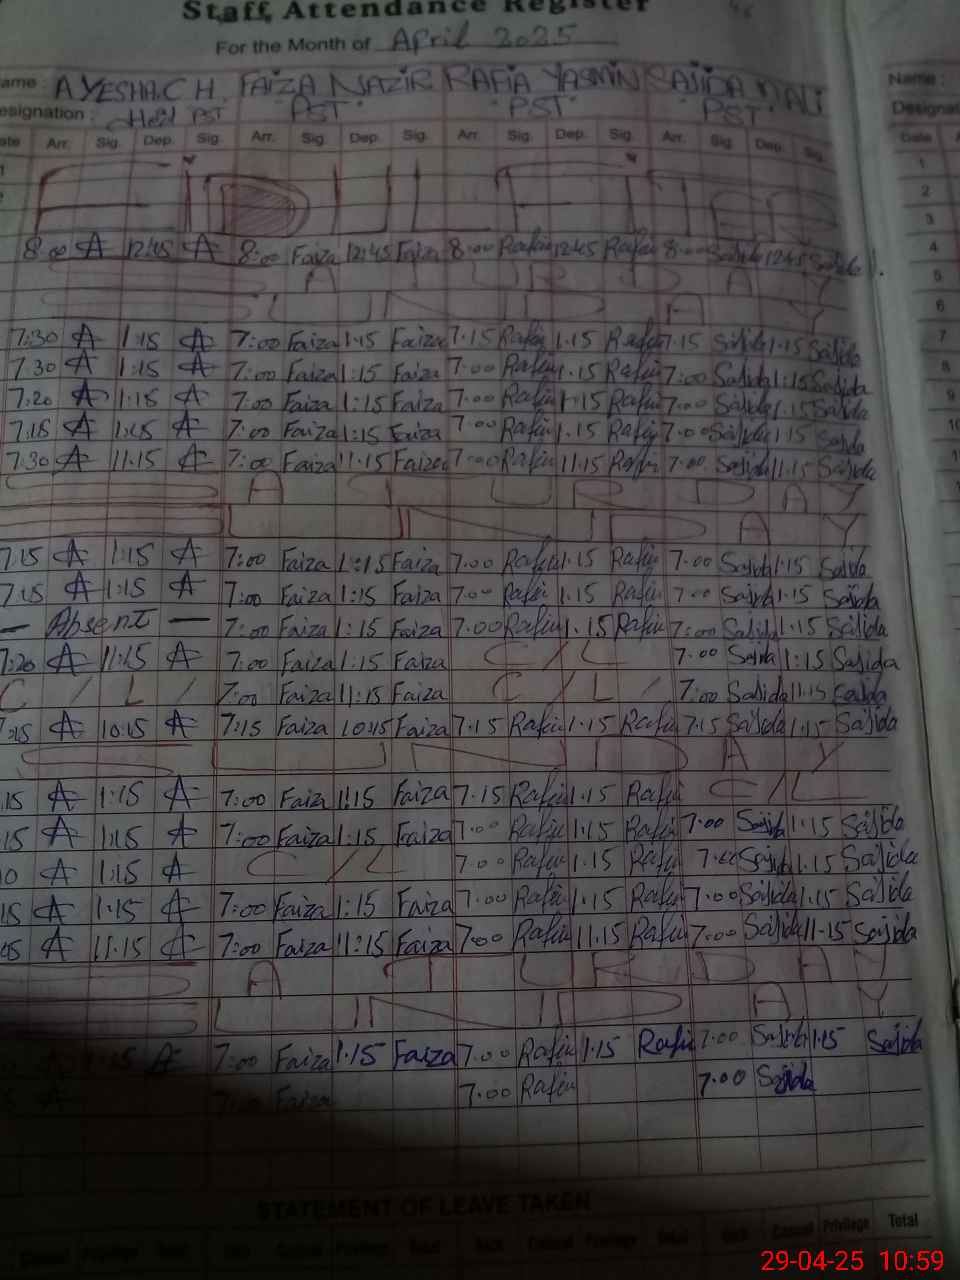 Staff Attendance Register
For the Month of April 2025
ame : AYESHA.C H. FAIZA NAZIR RAFIA YASMIN SAJIDA Name :
esignation : Head PST PST. PST. PST. Designat
ate Arr. Sig. Dep. Sig. Arr. Sig. Dep. Sig. Arr. Sig. Dep. Sig. Arr. Sig. Dep. Sig. Date
1 1
2 2
3
8:00 A 12:45 A 8:00 Faiza 12:45 Faiza 8:00 Rafia 12:45 Rafia 8:00 Sajida 12:45 Sajida 4
S A T U R D A Y 5
S U N D A Y 6
7:30 A 1:15 A 7:00 Faiza 1.15 Faiza 7.15 Rafia 1.15 Rafia 7.15 Sajida 1.15 Sajida 7
7.30 A 1:15 A 7:00 Faiza 1:15 Faiza 7.00 Rafia 1.15 Rafia 7:00 Sajida 1:15 Sajida 8
7:20 A 1:15 A 7:00 Faiza 1:15 Faiza 7.00 Rafia 1.15 Rafia 7.00 Sajida 1.15 Sajida 9
7:15 A 1:15 A 7:00 Faiza 1:15 Faiza 7.00 Rafia 1.15 Rafia 7.00 Sajida 1.15 Sajida 10
7.30 A 11.15 A 7:00 Faiza 11.15 Faiza 7.00 Rafia 11.15 Rafia 7.00 Sajida 11.15 Sajida
S A T U R D A Y
S U N D A Y
7:15 A 1:15 A 7:00 Faiza 1:15 Faiza 7.00 Rafia 1.15 Rafia 7.00 Sajida 1.15 Sajida
7:15 A 1:15 A 7:00 Faiza 1:15 Faiza 7.00 Rafia 1.15 Rafia 7.00 Sajida 1.15 Sajida
— Absent — 7:00 Faiza 1:15 Faiza 7.00 Rafia 1.15 Rafia 7:00 Sajida 1.15 Sajida
7:20 A 1:15 A 7:00 Faiza 1:15 Faiza C / L 7.00 Sajida 1:15 Sajida
C / L / 7:00 Faiza 11:15 Faiza C / L / 7:00 Sajida 11.15 Sajida
7:15 A 10:15 A 7:15 Faiza 10:15 Faiza 7.15 Rafia 1.15 Rafia 7.15 Sajida 1.15 Sajida
S U N D A Y
15 A 1:15 A 7:00 Faiza 1:15 Faiza 7.15 Rafia 1.15 Rafia C / L
15 A 1:15 A 7:00 Faiza 1:15 Faiza 7.00 Rafia 1.15 Rafia 7.00 Sajida 1.15 Sajida
0 A 1:15 A C / L 7.00 Rafia 1.15 Rafia 7.00 Sajida 1.15 Sajida
15 A 1:15 A 7:00 Faiza 1:15 Faiza 7.00 Rafia 1.15 Rafia 7.00 Sajida 1.15 Sajida
05 A 11.15 A 7:00 Faiza 11:15 Faiza 7.00 Rafia 11.15 Rafia 7:00 Sajida 11.15 Sajida
S A T U R D A Y
S U N D A Y
A 7:00 Faiza 1.15 Faiza 7.00 Rafia 1.15 Rafia 7.00 Sajida 1.15 Sajida
A 7:00 Faiza 7.00 Rafia 7.00 Sajida
STATEMENT OF LEAVE TAKEN
Casual Privilege Total
29-04-25 10:59